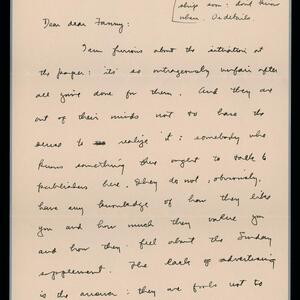 ship soon: dont know
when. No details.
Dear dear Fanny:
I am furious about the situation at
the paper: it's so outrageously unfair after
all you've done for them. And they are
out of their minds not to have the
sense to realize it: somebody who
knows something there ought to talk to
publishers here. They do not, obviously,
have any knowledge of how they like
you and how much they value you
and how they feel about the Sunday
supplement. The lack of advertising
is the answer: they are fools not to